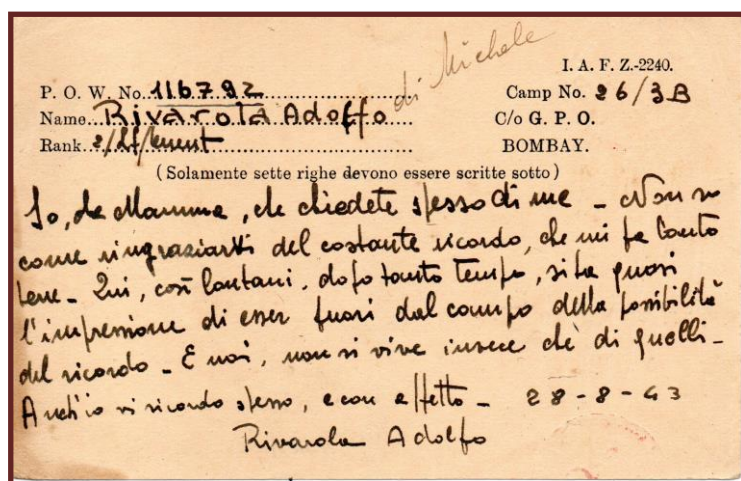 di Michele
I. A. F. Z.-2240.
P. O. W. No. 116792
Camp No. 26/3B
Name Rivarola Adolfo
C/o G. P. O.
Rank 2/Lt/
BOMBAY.
(Solamente sette righe devono essere scritte sotto)
So, da Mamma, che chiedete spesso di me - Non so
come ringraziarvi del costante ricordo, che mi fa tanto
bene - Qui, così lontani, dopo tanto tempo, si ha quasi
l'impressione di esser fuori dal campo della possibilità
del ricordo - E noi, non si vive invece che di quelli -
Anch'io vi ricordo spesso, e con affetto - 28-8-43
Rivarola Adolfo